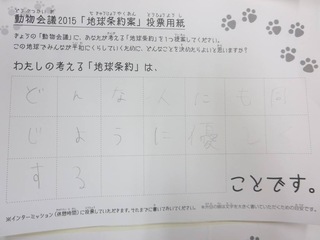 動物会議2015「地球条約案」投票用紙
きょうの「動物会議」に、あなたが考える「地球条約」を1つ提案してください。
この地球でみんなが平和にくらしていくために、どんなことを決めたらよいと思いますか?
わたしの考える「地球条約」は、
どんな人にもた
じように優し
する
ことです。
※インターミッション(休憩時間)に投票していただきます。それまでに書いておいてください。